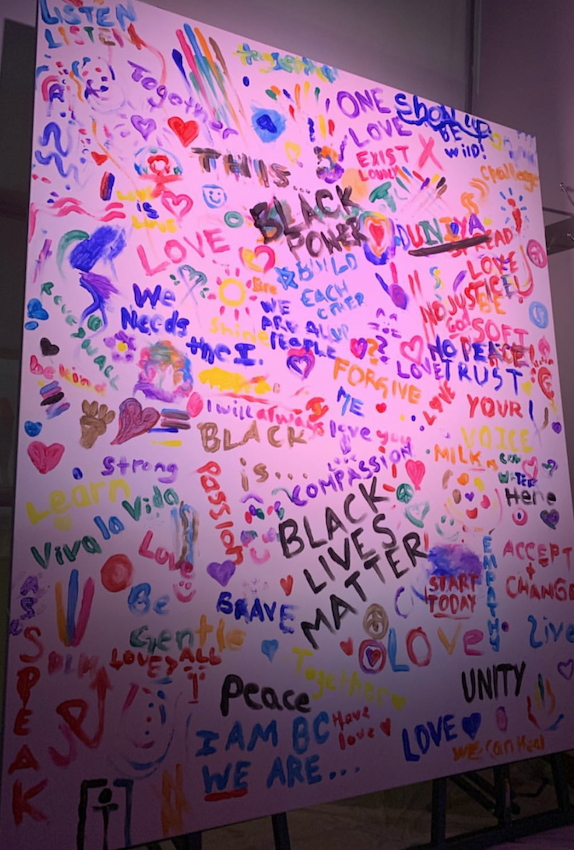 LISTEN
LISTEN
Together
Together
ONE
LOVE
show up
BE
wild!
EXIST
LOUDLY
Challenge
THIS...
BLACK
POWER
DUNIYA
SPREAD
LOVE
is
LOVE
LOVE
BUILD
EACH
OTHER
We
Needs
the I.
Shine
WE
ARE ALL
PEOPLE
NO JUSTICE
NO PEACE
BE
SOFT
LOVE
TRUST
be kind
FORGIVE
ME
I will always
love you
LOVE
YOUR
VOICE
BLACK
is...
MILK
Strong
Passion
COMPASSION
Here
Learn
Viva la Vida
BLACK
LIVES
MATTER
Love
START
TODAY
EMPATHY
ACCEPT
+
CHANGE
Be
Gentle
BRAVE
LOVE
Live
SPEAK
BLM
LOVE > ALL
Together
Peace
UNITY
I AM BC
WE ARE...
Have
love
LOVE
WE CAN Heal